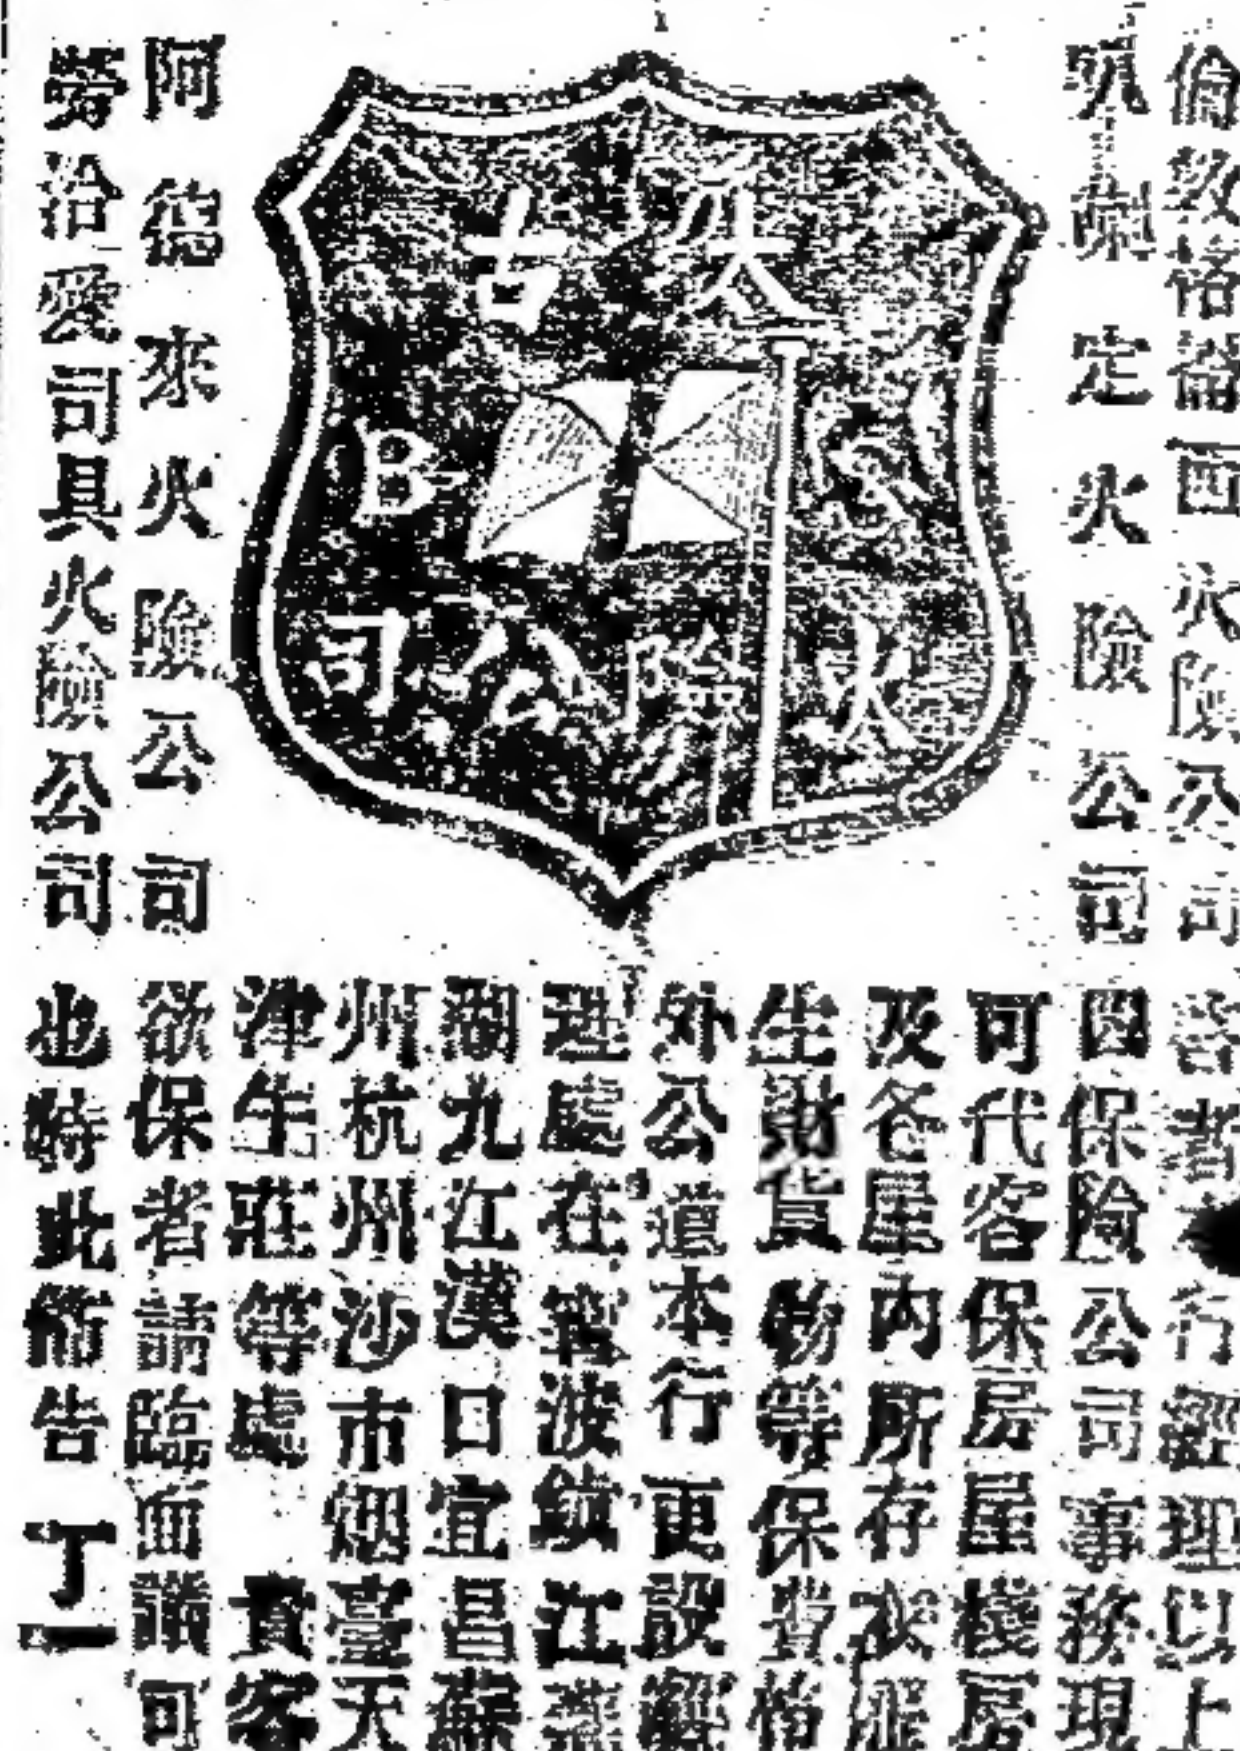 火險公司
定火險公司
太古
火險公司
B
阿德來火險公司
勞拾愛司具火險公司
者行經理以上
四保險公司事務現
可代客保房屋棧房
及各屋內所存衣
生財貨物等保費
外公道本行更設經
理處在寧波鎮江蕪
湖九江漢口宜昌蘇
州杭州沙市烟臺天
津牛莊等處 貴客
欲保者請臨面議可
也特此佈告 丁一